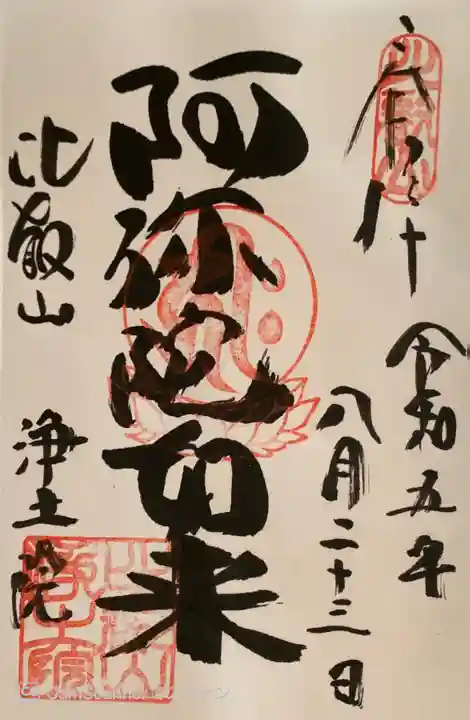 奉拝
令和五年
八月二十三日
阿弥陀如来
比叡山 浄土院